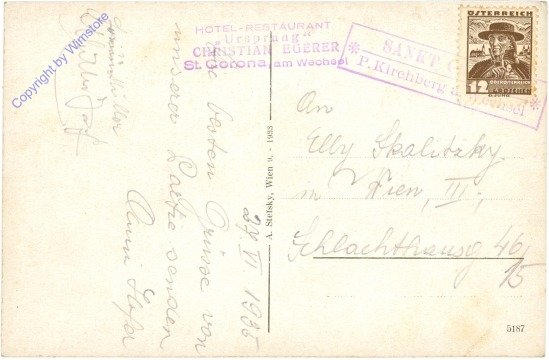 Copyright by Wimstore
HOTEL-RESTAURANT
"Ursprung"
CHRISTIAN EGERER
St. Corona, am Wechsel
* SANKT
P. Kirchberg a. Wechsel *
ÖSTERREICH
OBERÖSTERREICH
12 GROSCHEN
27 VI 1935
besten Grüsse von
unserer Partie senden
A. Stefsky, Wien 9. - 1933
An
Elly Skalitzky
in Wien, III;
Schlachthausg 46/15
5187